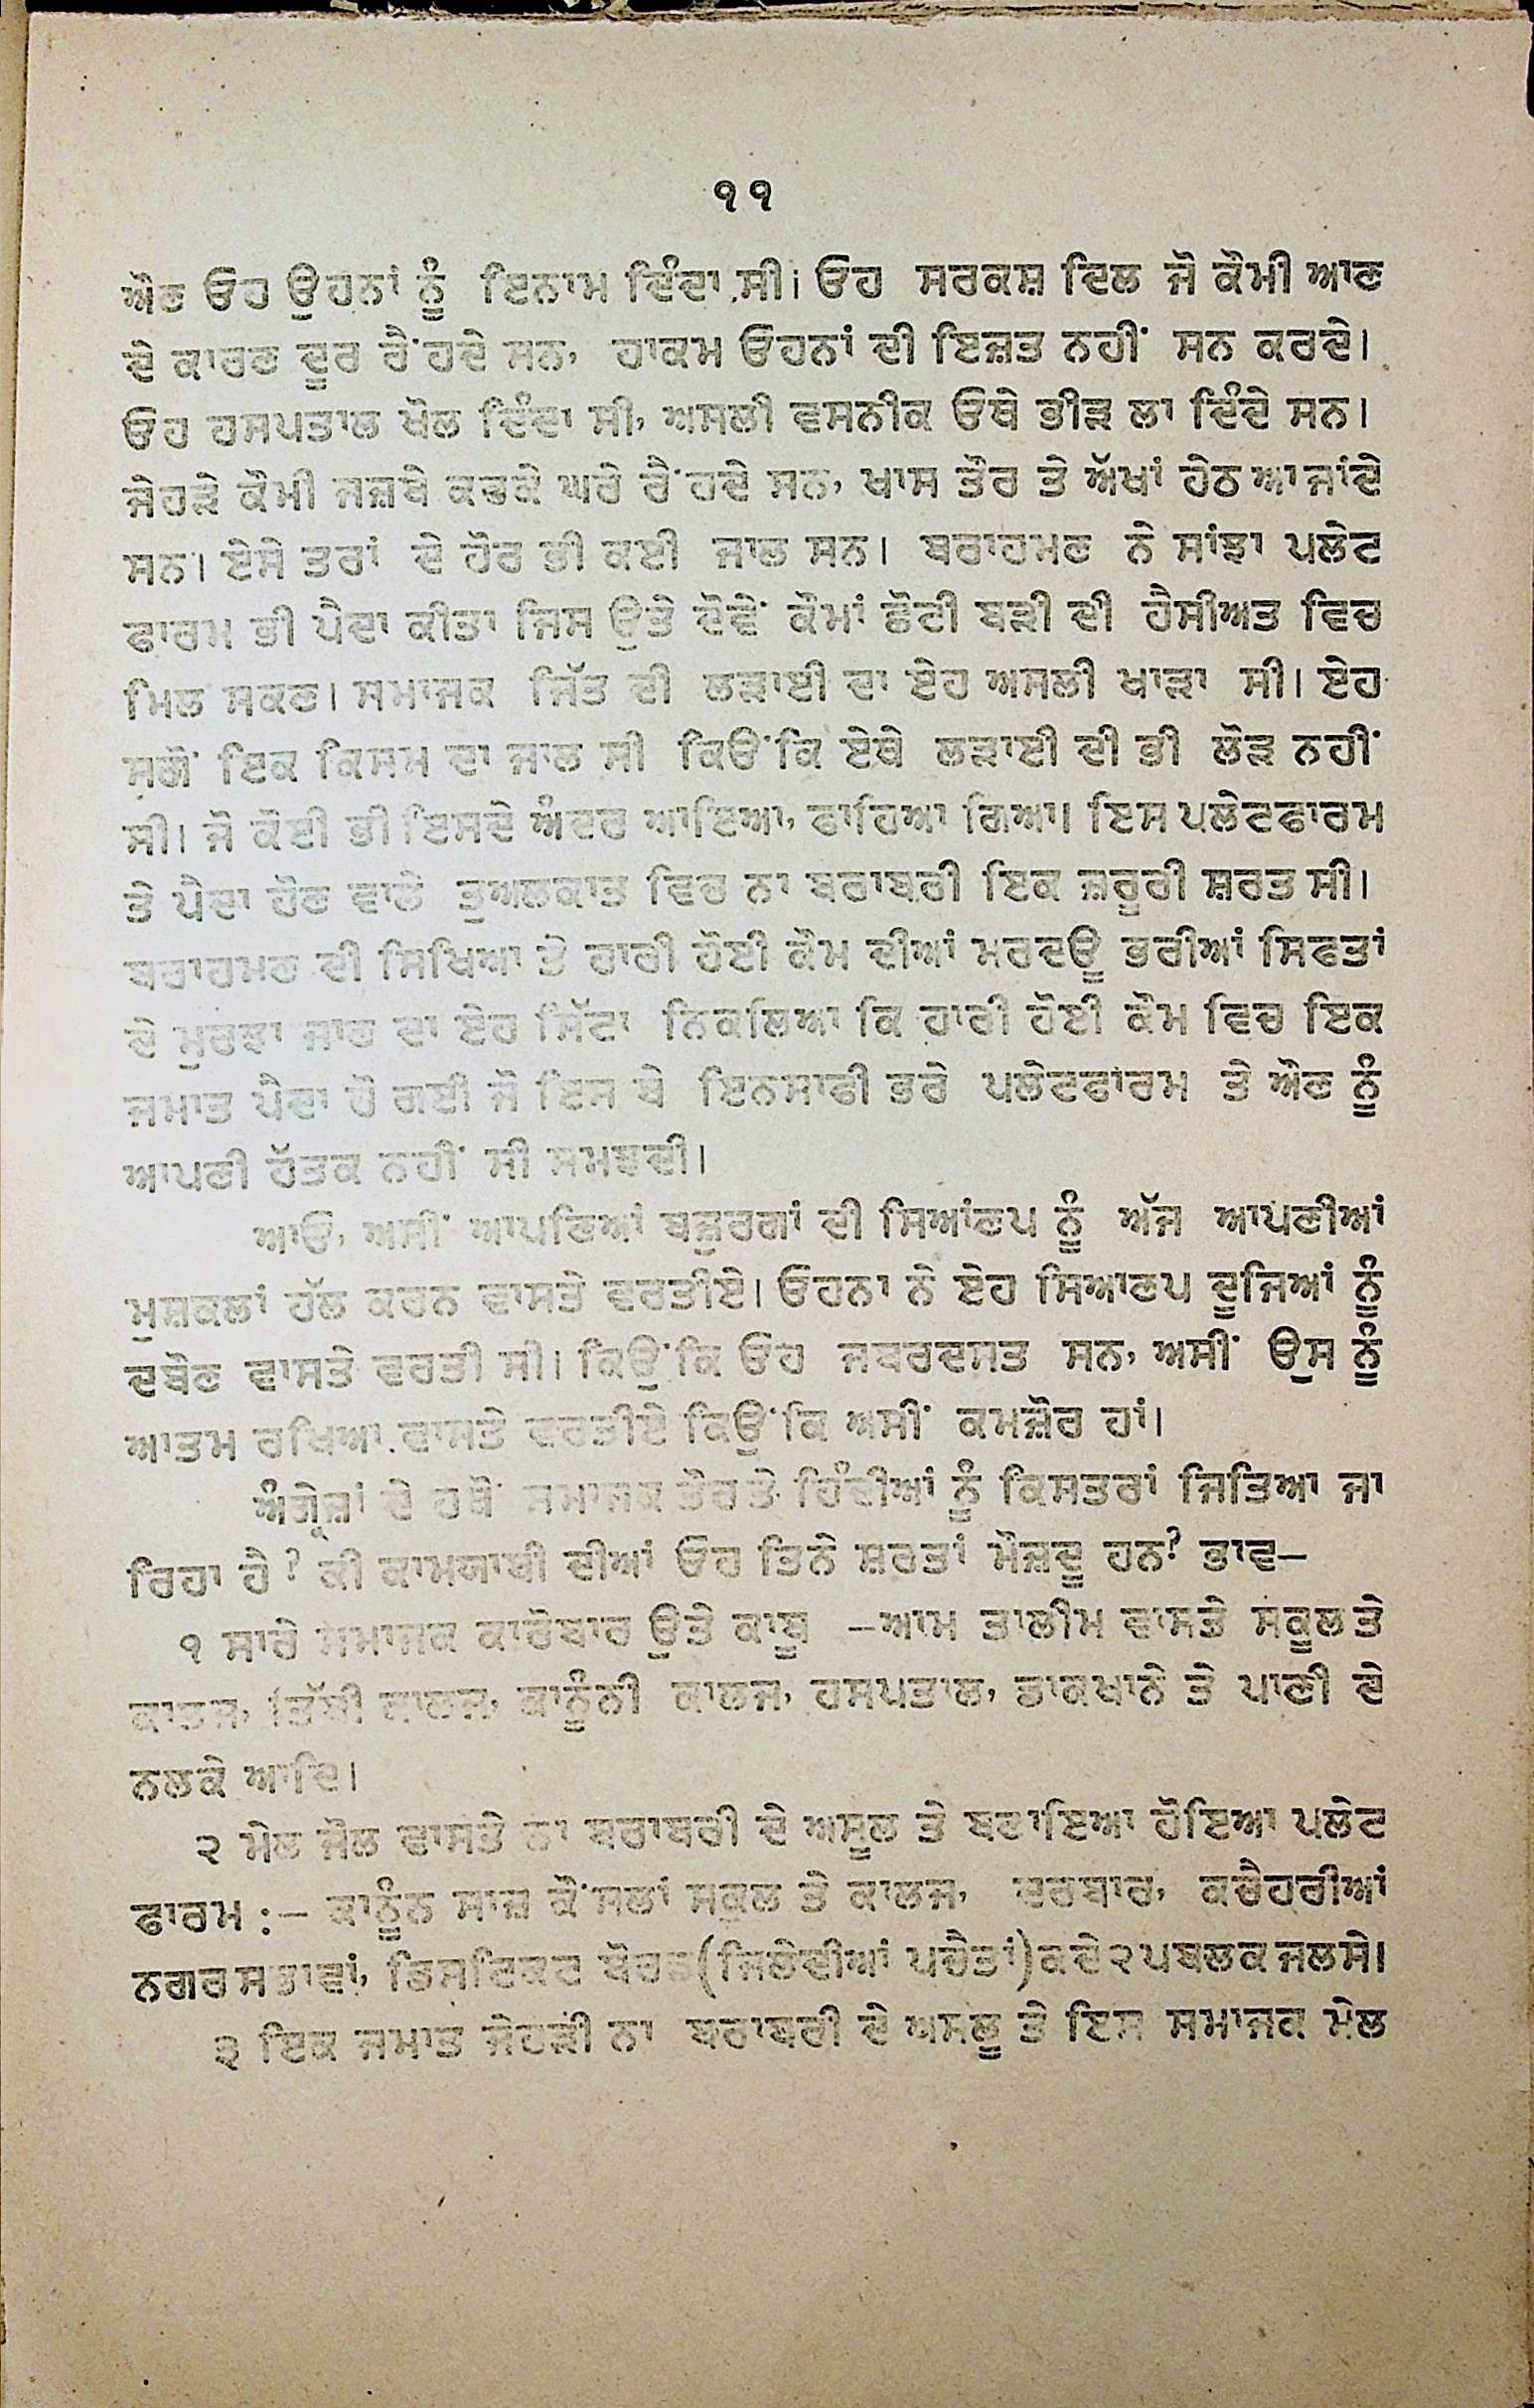 ੧੧
ਔਣ ਓਹ ਉਹਨਾਂ ਨੂੰ ਇਨਾਮ ਦਿੰਦਾ ਸੀ। ਓਹ ਸਰਕਸ਼ ਦਿਲ ਜੋ ਕੌਮੀ ਆਣ
ਦੇ ਕਾਰਣ ਦੂਰ ਰੈਂਹਦੇ ਸਨ, ਹਾਕਮ ਓਹਨਾਂ ਦੀ ਇਜ਼ਤ ਨਹੀਂ ਸਨ ਕਰਦੇ।
ਓਹ ਹਸਪਤਾਲ ਖੋਲ ਦਿੰਦਾ ਸੀ, ਅਸਲੀ ਵਸਨੀਕ ਓਥੇ ਭੀੜ ਲਾ ਦਿੰਦੇ ਸਨ।
ਜੇਹੜੇ ਕੌਮੀ ਜਜ਼ਬੇ ਕਢਕੇ ਘਰੇ ਰੈਂਹਦੇ ਸਨ, ਖਾਸ ਤੌਰ ਤੇ ਅੱਖਾਂ ਹੇਠ ਆ ਜਾਂਦੇ
ਸਨ। ਏਸੇ ਤਰਾਂ ਦੇ ਹੋਰ ਭੀ ਕਈ ਜਾਲ ਸਨ। ਬਰਾਹਮਣ ਨੇ ਸਾਂਝਾ ਪਲੇਟ
ਫਾਰਮ ਭੀ ਪੈਦਾ ਕੀਤਾ ਜਿਸ ਉਤੇ ਦੋਵੇਂ ਕੌਮਾਂ ਛੋਟੀ ਬੜੀ ਦੀ ਹੈਸੀਅਤ ਵਿਚ
ਮਿਲ ਸਕਣ। ਸਮਾਜਕ ਜਿੱਤ ਦੀ ਲੜਾਈ ਦਾ ਏਹ ਅਸਲੀ ਖਾੜਾ ਸੀ। ਏਹ
ਸਗੋਂ ਇਕ ਕਿਸਮ ਦਾ ਜਾਲ ਸੀ ਕਿਓਂਕਿ ਏਥੇ ਲੜਾਈ ਦੀ ਭੀ ਲੋੜ ਨਹੀਂ
ਸੀ। ਜੋ ਕੋਈ ਭੀ ਇਸਦੇ ਅੰਦਰ ਆਇਆ, ਫਾਹਿਆ ਗਿਆ। ਇਸ ਪਲੇਟਫਾਰਮ
ਤੇ ਪੈਦਾ ਹੋਣ ਵਾਲੇ ਤੁਅਲਕਾਤ ਵਿਚ ਨਾ ਬਰਾਬਰੀ ਇਕ ਜ਼ਰੂਰੀ ਸ਼ਰਤ ਸੀ।
ਬਰਾਹਮਣ ਦੀ ਸਿਖਿਆ ਤੇ ਹਾਰੀ ਹੋਈ ਕੌਮ ਦੀਆਂ ਮਰਦਊ ਭਰੀਆਂ ਸਿਫਤਾਂ
ਦੇ ਮੁਰਝਾ ਜਾਣ ਦਾ ਏਹ ਸਿੱਟਾ ਨਿਕਲਿਆ ਕਿ ਹਾਰੀ ਹੋਈ ਕੌਮ ਵਿਚ ਇਕ
ਜਮਾਤ ਪੈਦਾ ਹੋ ਗਈ ਜੋ ਇਸ ਬੇ ਇਨਸਾਫੀ ਭਰੇ ਪਲੇਟਫਾਰਮ ਤੇ ਔਣ ਨੂੰ
ਆਪਣੀ ਹੱਤਕ ਨਹੀਂ ਸੀ ਸਮਝਦੀ।
ਆਓ, ਅਸੀਂ ਆਪਣਿਆਂ ਬਜ਼ੁਰਗਾਂ ਦੀ ਸਿਆਂਣਪ ਨੂੰ ਅੱਜ ਆਪਣੀਆਂ
ਮੁਸ਼ਕਲਾਂ ਹੱਲ ਕਰਨ ਵਾਸਤੇ ਵਰਤੀਏ। ਓਹਨਾ ਨੇ ਏਹ ਸਿਆਣਪ ਦੂਜਿਆਂ ਨੂੰ
ਦਬੌਣ ਵਾਸਤੇ ਵਰਤੀ ਸੀ। ਕਿਉਂਕਿ ਓਹ ਜ਼ਬਰਦਸਤ ਸਨ, ਅਸੀਂ ਉਸ ਨੂੰ
ਆਤਮ ਰਖਿਆ ਵਾਸਤੇ ਵਰਤੀਏ ਕਿਉਂਕਿ ਅਸੀਂ ਕਮਜ਼ੋਰ ਹਾਂ।
ਅੰਗ੍ਰੇਜ਼ਾਂ ਦੇ ਹਥੋਂ ਸਮਾਜਕ ਤੌਰ ਤੇ ਹਿੰਦੀਆਂ ਨੂੰ ਕਿਸਤਰਾਂ ਜਿਤਿਆ ਜਾ
ਰਿਹਾ ਹੈ? ਕੀ ਕਾਮਯਾਬੀ ਦੀਆਂ ਓਹ ਤਿਨੇ ਸ਼ਰਤਾਂ ਮੌਜ਼ਦੂ ਹਨ? ਭਾਵ—
੧ ਸਾਰੇ ਸਮਾਜਕ ਕਾਰੋਬਾਰ ਉਤੇ ਕਾਬੂ —ਆਮ ਤਾਲੀਮ ਵਾਸਤੇ ਸਕੂਲ ਤੇ
ਕਾਲਜ, ਤਿੱਬੀ ਕਾਲਜ, ਕਾਨੂੰਨੀ ਕਾਲਜ, ਹਸਪਤਾਲ, ਡਾਕਖਾਨੇ ਤੇ ਪਾਣੀ ਦੇ
ਨਲਕੇ ਆਦਿ।
੨ ਮੇਲ ਜੋਲ ਵਾਸਤੇ ਨਾ ਬਰਾਬਰੀ ਦੇ ਅਸੂਲ ਤੇ ਬਣਾਇਆ ਹੋਇਆ ਪਲੇਟ
ਫਾਰਮ :— ਕਾਨੂੰਨ ਸਾਜ਼ ਕੌਂਸਲਾਂ ਸਕੂਲ ਤੇ ਕਾਲਜ, ਦਰਬਾਰ, ਕਚੈਹਰੀਆਂ
ਨਗਰ ਸਭਾਵਾਂ, ਡਿਸਟਿਕਟ ਬੋਰਡ (ਜ਼ਿਲੇਦੀਆਂ ਪਚੈਤਾਂ) ਕਦੇ ੨ ਪਬਲਕ ਜਲਸੇ।
੩ ਇਕ ਜਮਾਤ ਜੇਹੜੀ ਨਾ ਬਰਾਬਰੀ ਦੇ ਅਸਲੂ ਤੇ ਇਸ ਸਮਾਜਕ ਮੇਲ